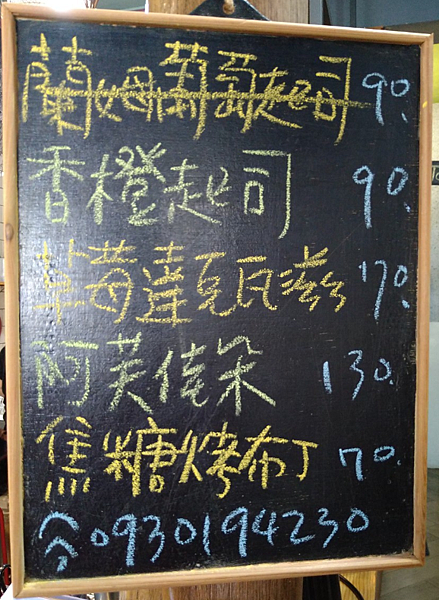 蘭姆葡萄起司 90.
香橙起司 90.
草莓達克瓦滋 70.
阿芙佳朵 130.
焦糖烤布丁 70.
0930194230